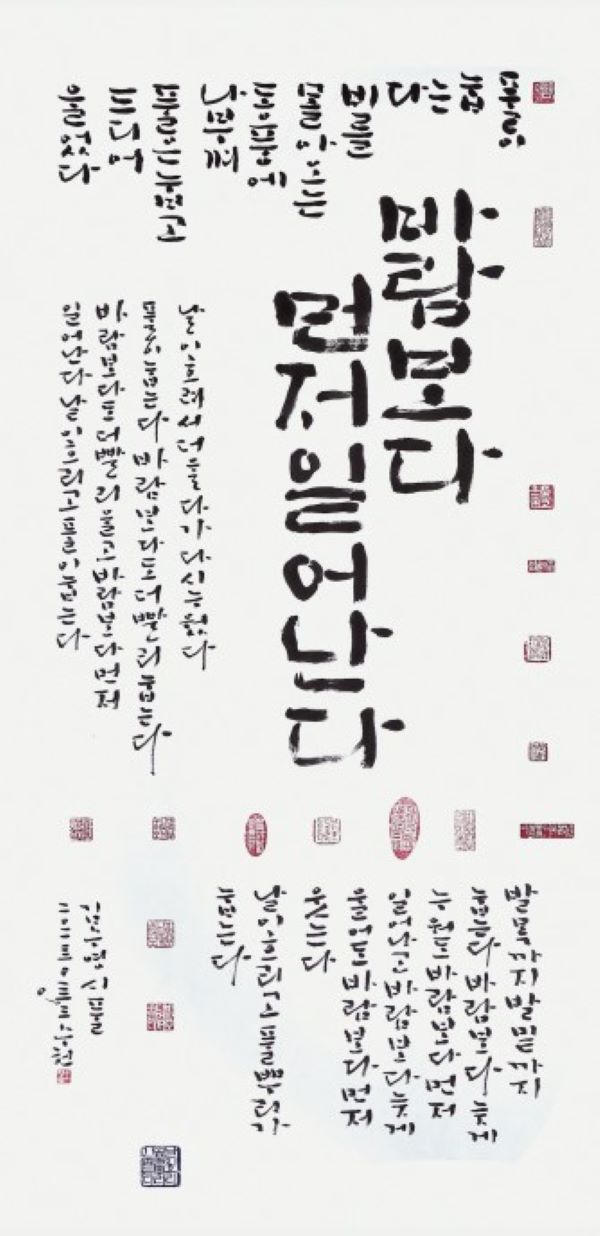 풀이
눕
는
다
비를
몰아오는
동풍에
나부껴
풀은 눕고
드디어
울었다
바람보다
먼저 일어난다
날이 흐려서 더 울다가 다시 누웠다
풀이 눕는다 바람보다도 더 빨리 눕는다
바람보다도 더 빨리 울고 바람보다 먼저
일어난다 날이 흐리고 풀이 눕는다
발목까지 발밑까지
눕는다 바람보다 늦게
누워도 바람보다 먼저
일어나고 바람보다 늦게
울어도 바람보다 먼저
웃는다
날이 흐리고 풀뿌리가
눕는다
김수영 풀